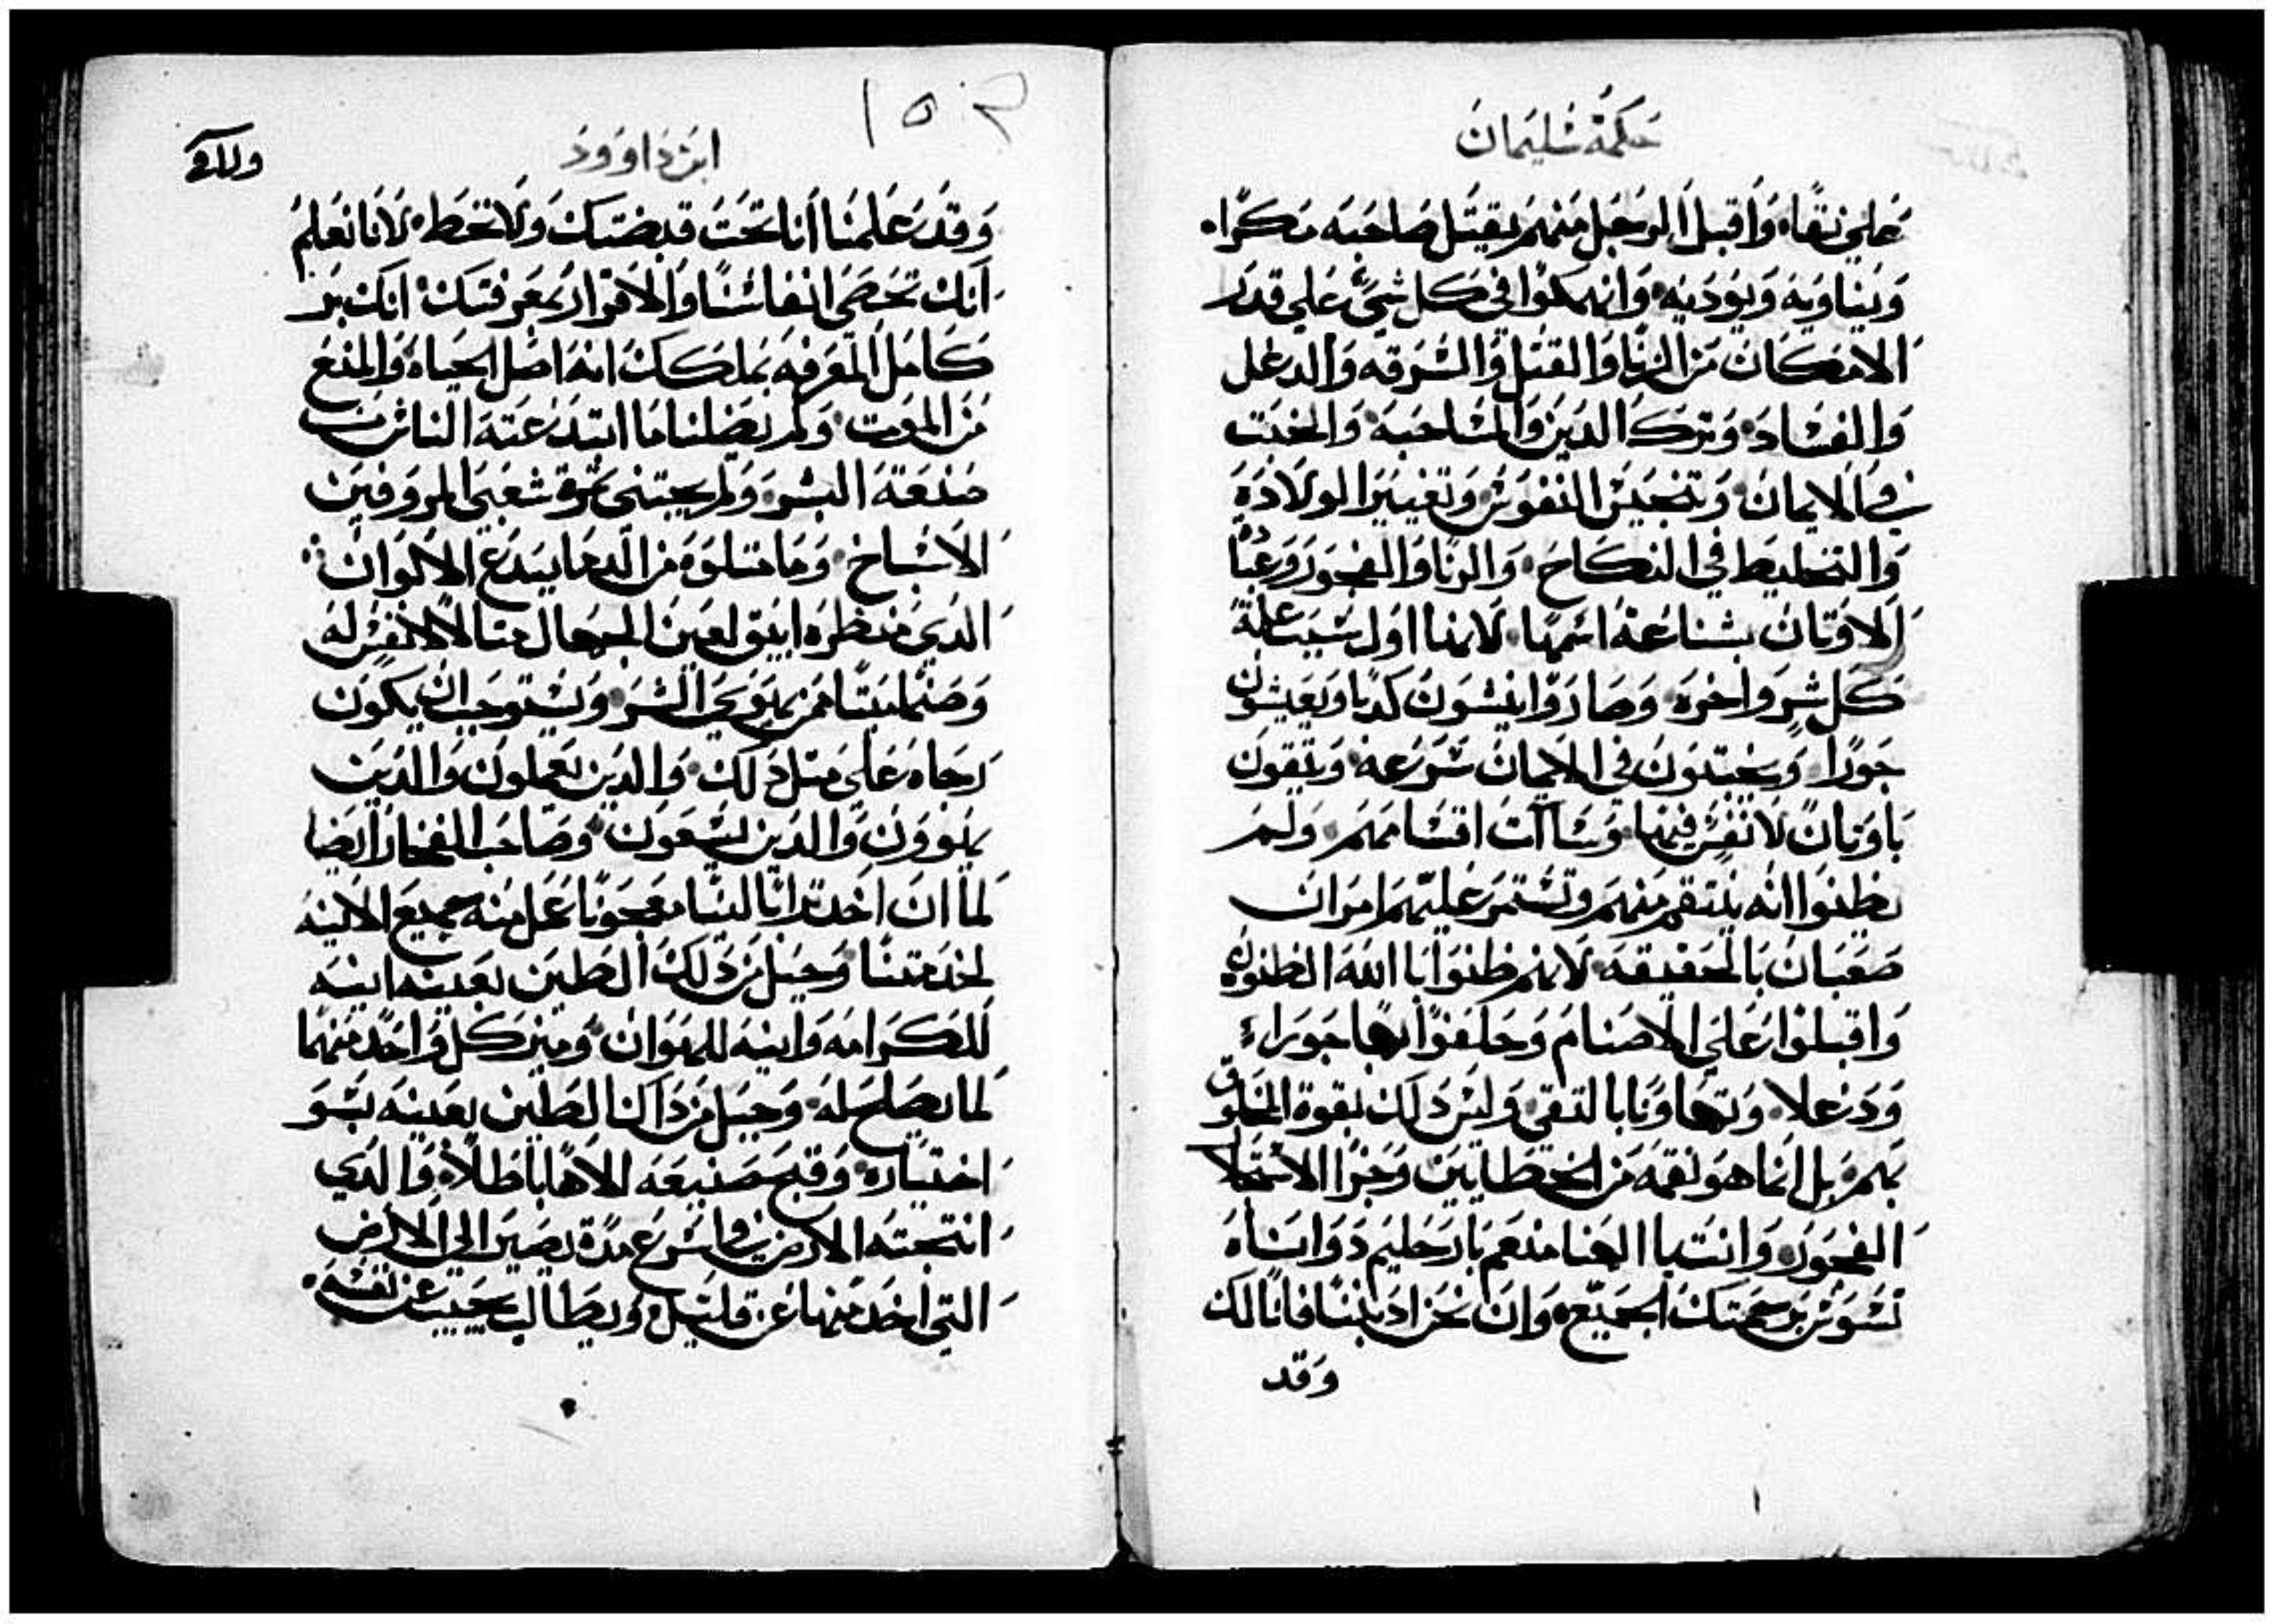 حكمة سليمان
علي نقاه وَاقبل الرجل منهم يقتل صاحبه مكرًا
وَيناويه وَيوديه وَانهمكوا في كل شيء علي قدر
الامكان من الزنا وَالقتل وَالسرقه وَالدغل
وَالفساد وَترك الدين وَالمشاحبه وَالخبت
في الايمان وَتنجيس النفوس وَتغيير الولاده
وَالتخليط في النكاح وَالزنا وَالفجور وَعبادة
الاوتان بشناعة اسمها لانها اول سبب علة
كل شر واخره وَصاروا ينسون كدبا وَيعيشون
جورًا وَيحبتدون في الايمان سرعه وَيتقون
باوتان لا نفس فيها وَساات اقسامهم وَلم
يظنوا انه ينتقم منهم وَتستمر عليهم امران
صعبان بالحقيقه لانهم ظنوا باالله الظنون
وَاقبلوا علي الاصنام وَحلفوا بها جورا
وَدغلا وَتهاونا بالتقي وَليس دلك بقوة المخلوق
بهم بل انما هو نقمه من الخطايين وَجزا الاستحلا
الفجور وَانت يا الهنا منعم بار حليم دو اساه
تسوس برحمتك الجميع وَان نحن ادنبنا فانا لك
وَقد
١٥٢
ابن داوود
وَقد علمنا أنا تحت قبضتك وَلا تخط لانا نعلم
انك تحصي انفاسنا وَالاقرار بمعرفتك انك بر
كامل المعرفه بملكك انه اصل الحياه وَالمنع
من الموت وَلم يضلنا ما ابتدعته الناس من
صنعة البشر وَلم يجتني تمرة شعبي المروفين
الاشباخ وَما متلوه من الدما يبدع الالوان
الدي منظره انيق لعين الجهال متالا لانفس له
وَصنما ميتا من يهوي الشر وَيستوجب ان يكون
رجاه علي متل دلك وَالدين يعملون وَالدين
يهوون وَالدين يسعون وَصاحب الفخار ايضا
لما ان اخد ترابا لينا معجونا عمل منه جميع الانيه
لخدمتنا وَجبل من دلك الطين بعينه انيه
للكرامه وَانيه للهوان وَميز كل وَاحد منهما
لما يصلح له وَجبل من داك الطين بعينه بسو
اختياره وَقبح صنيعه الاها باطلا وَالدي
انتجته الارض في اسرع مدة يصير الي الارض
التي اخد منها عن قليل وَيطالب بحبيب عن نفسه